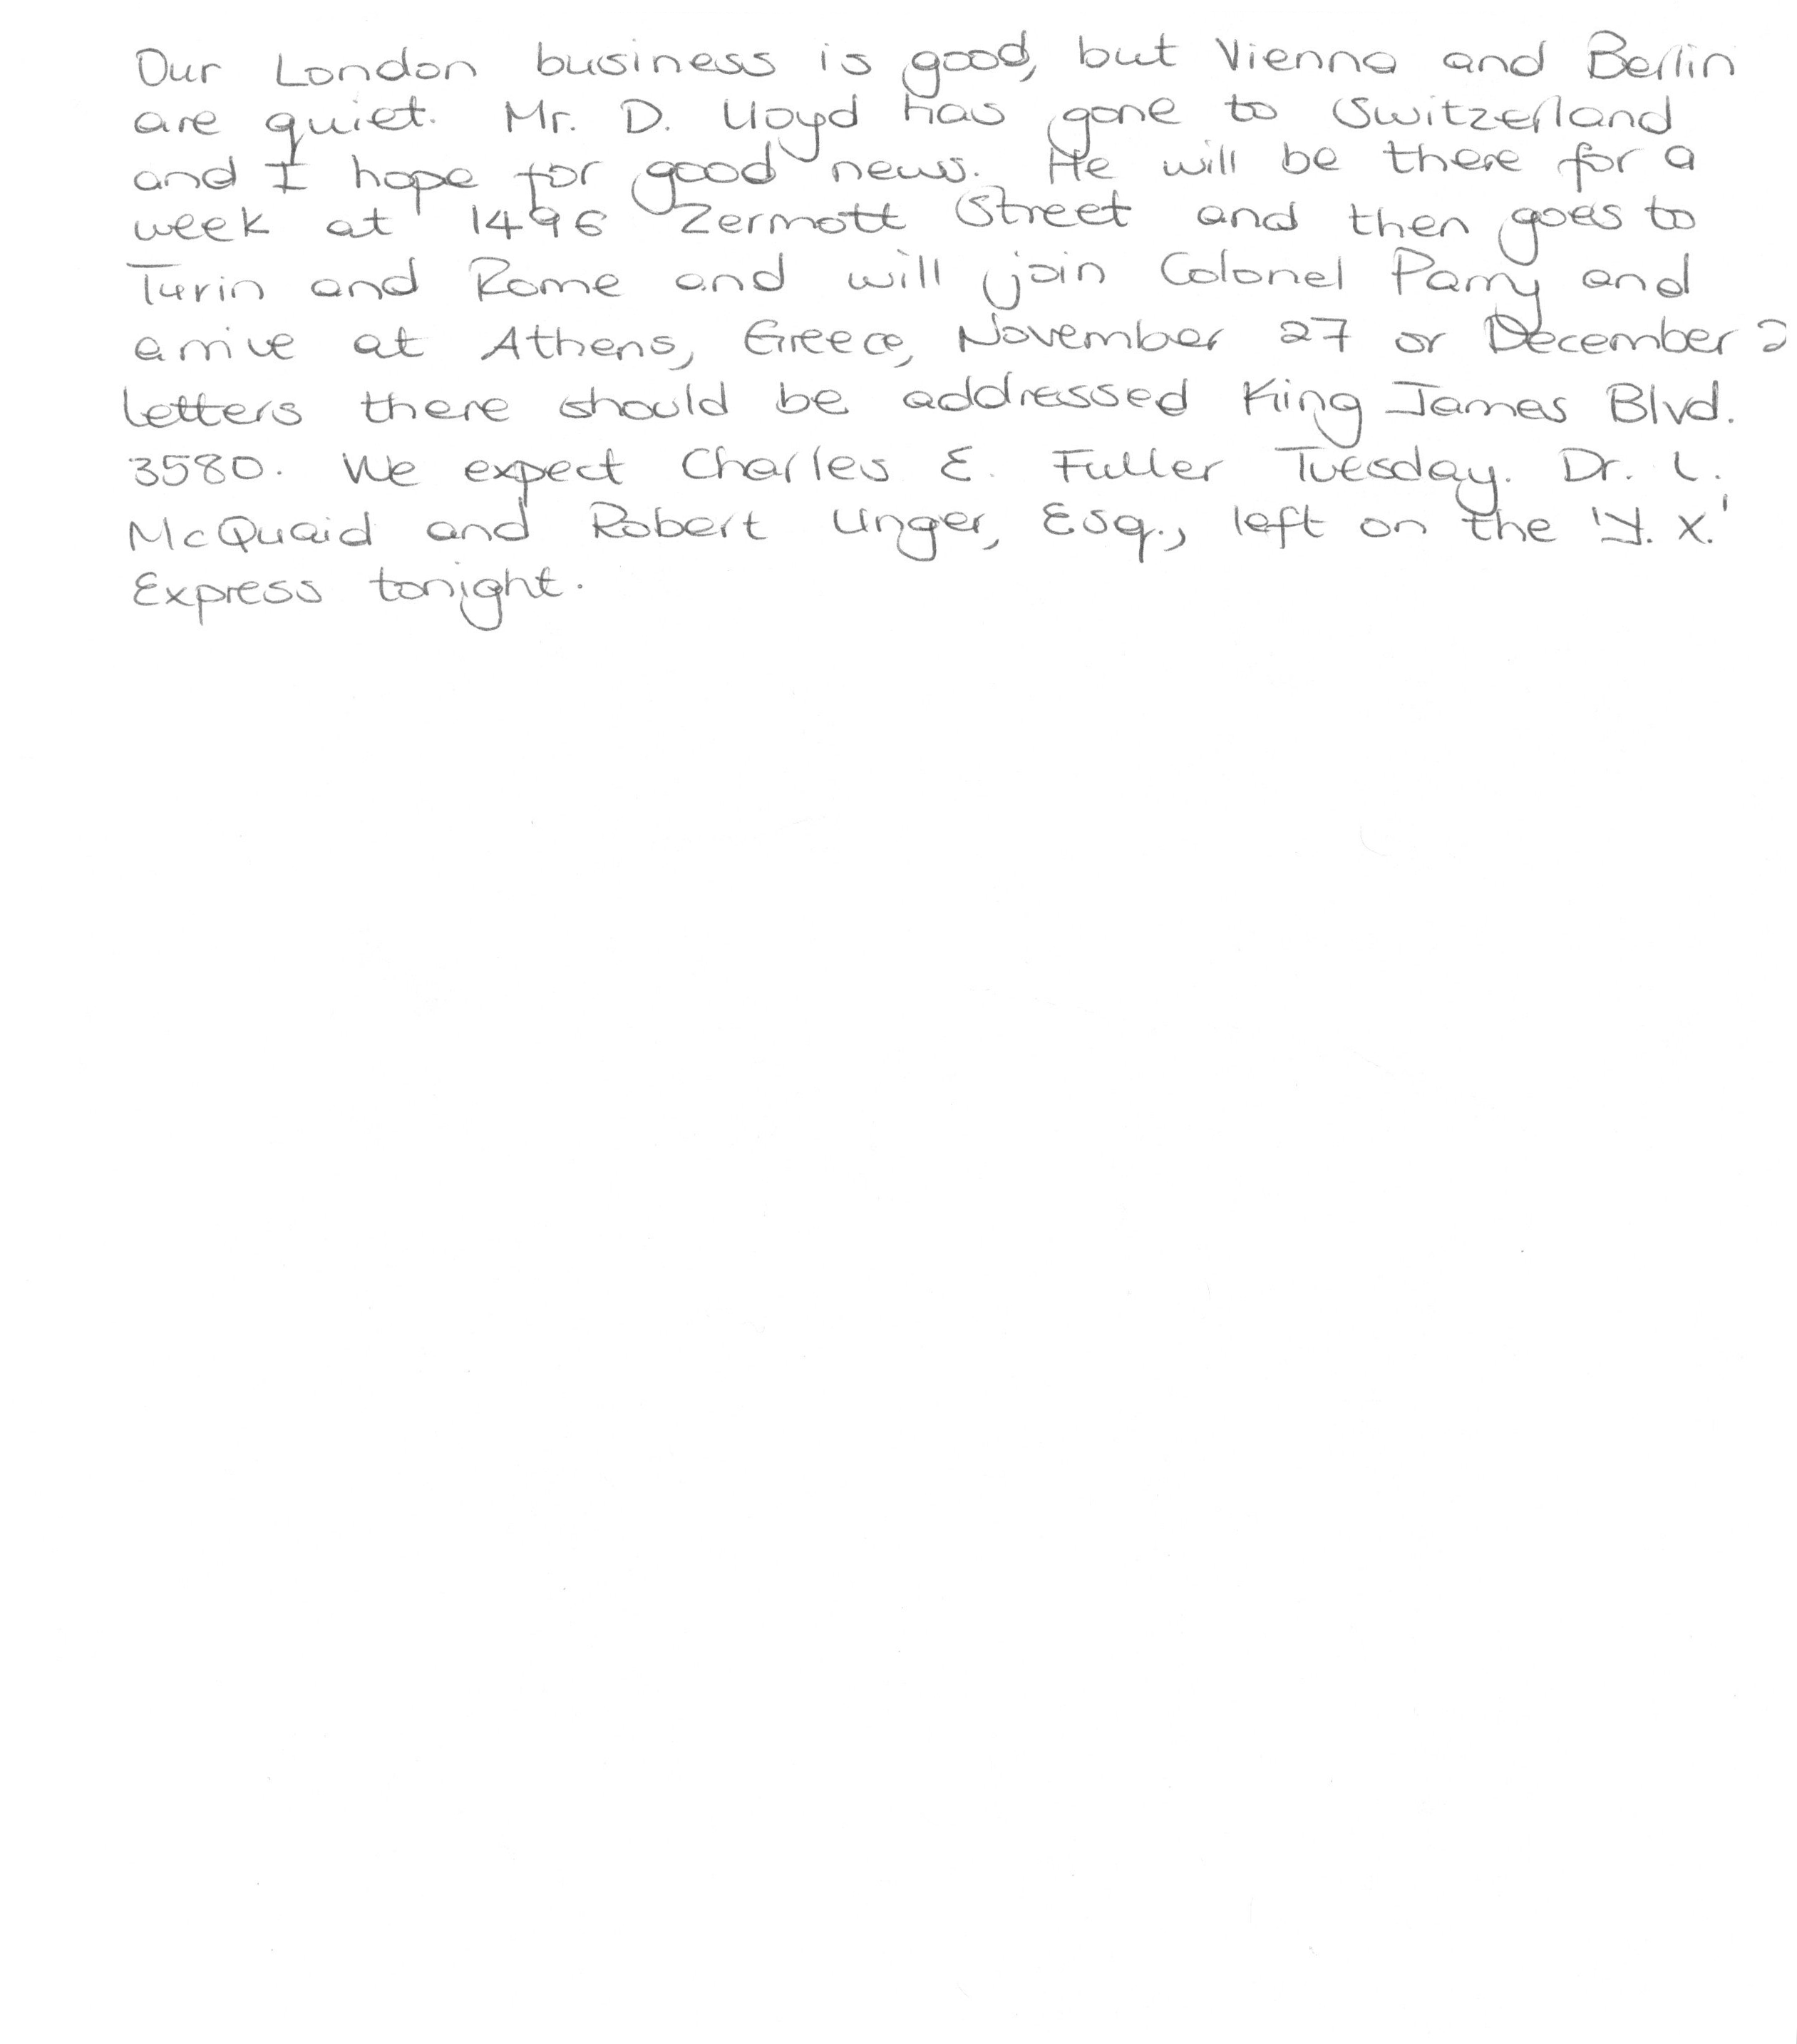 Our London business is good, but Vienna and Berlin
are quiet. Mr. D. Lloyd has gone to Switzerland
and I hope for good news. He will be there for a
week at 1496 Zermott Street and then goes to
Turin and Rome and will join Colonel Parry and
arrive at Athens, Greece, November 27 or December 2
letters there should be addressed King James Blvd.
3580. We expect Charles E. Fuller Tuesday. Dr. L.
McQuaid and Robert Unger, Esq., left on the 'Y. X.'
Express tonight.